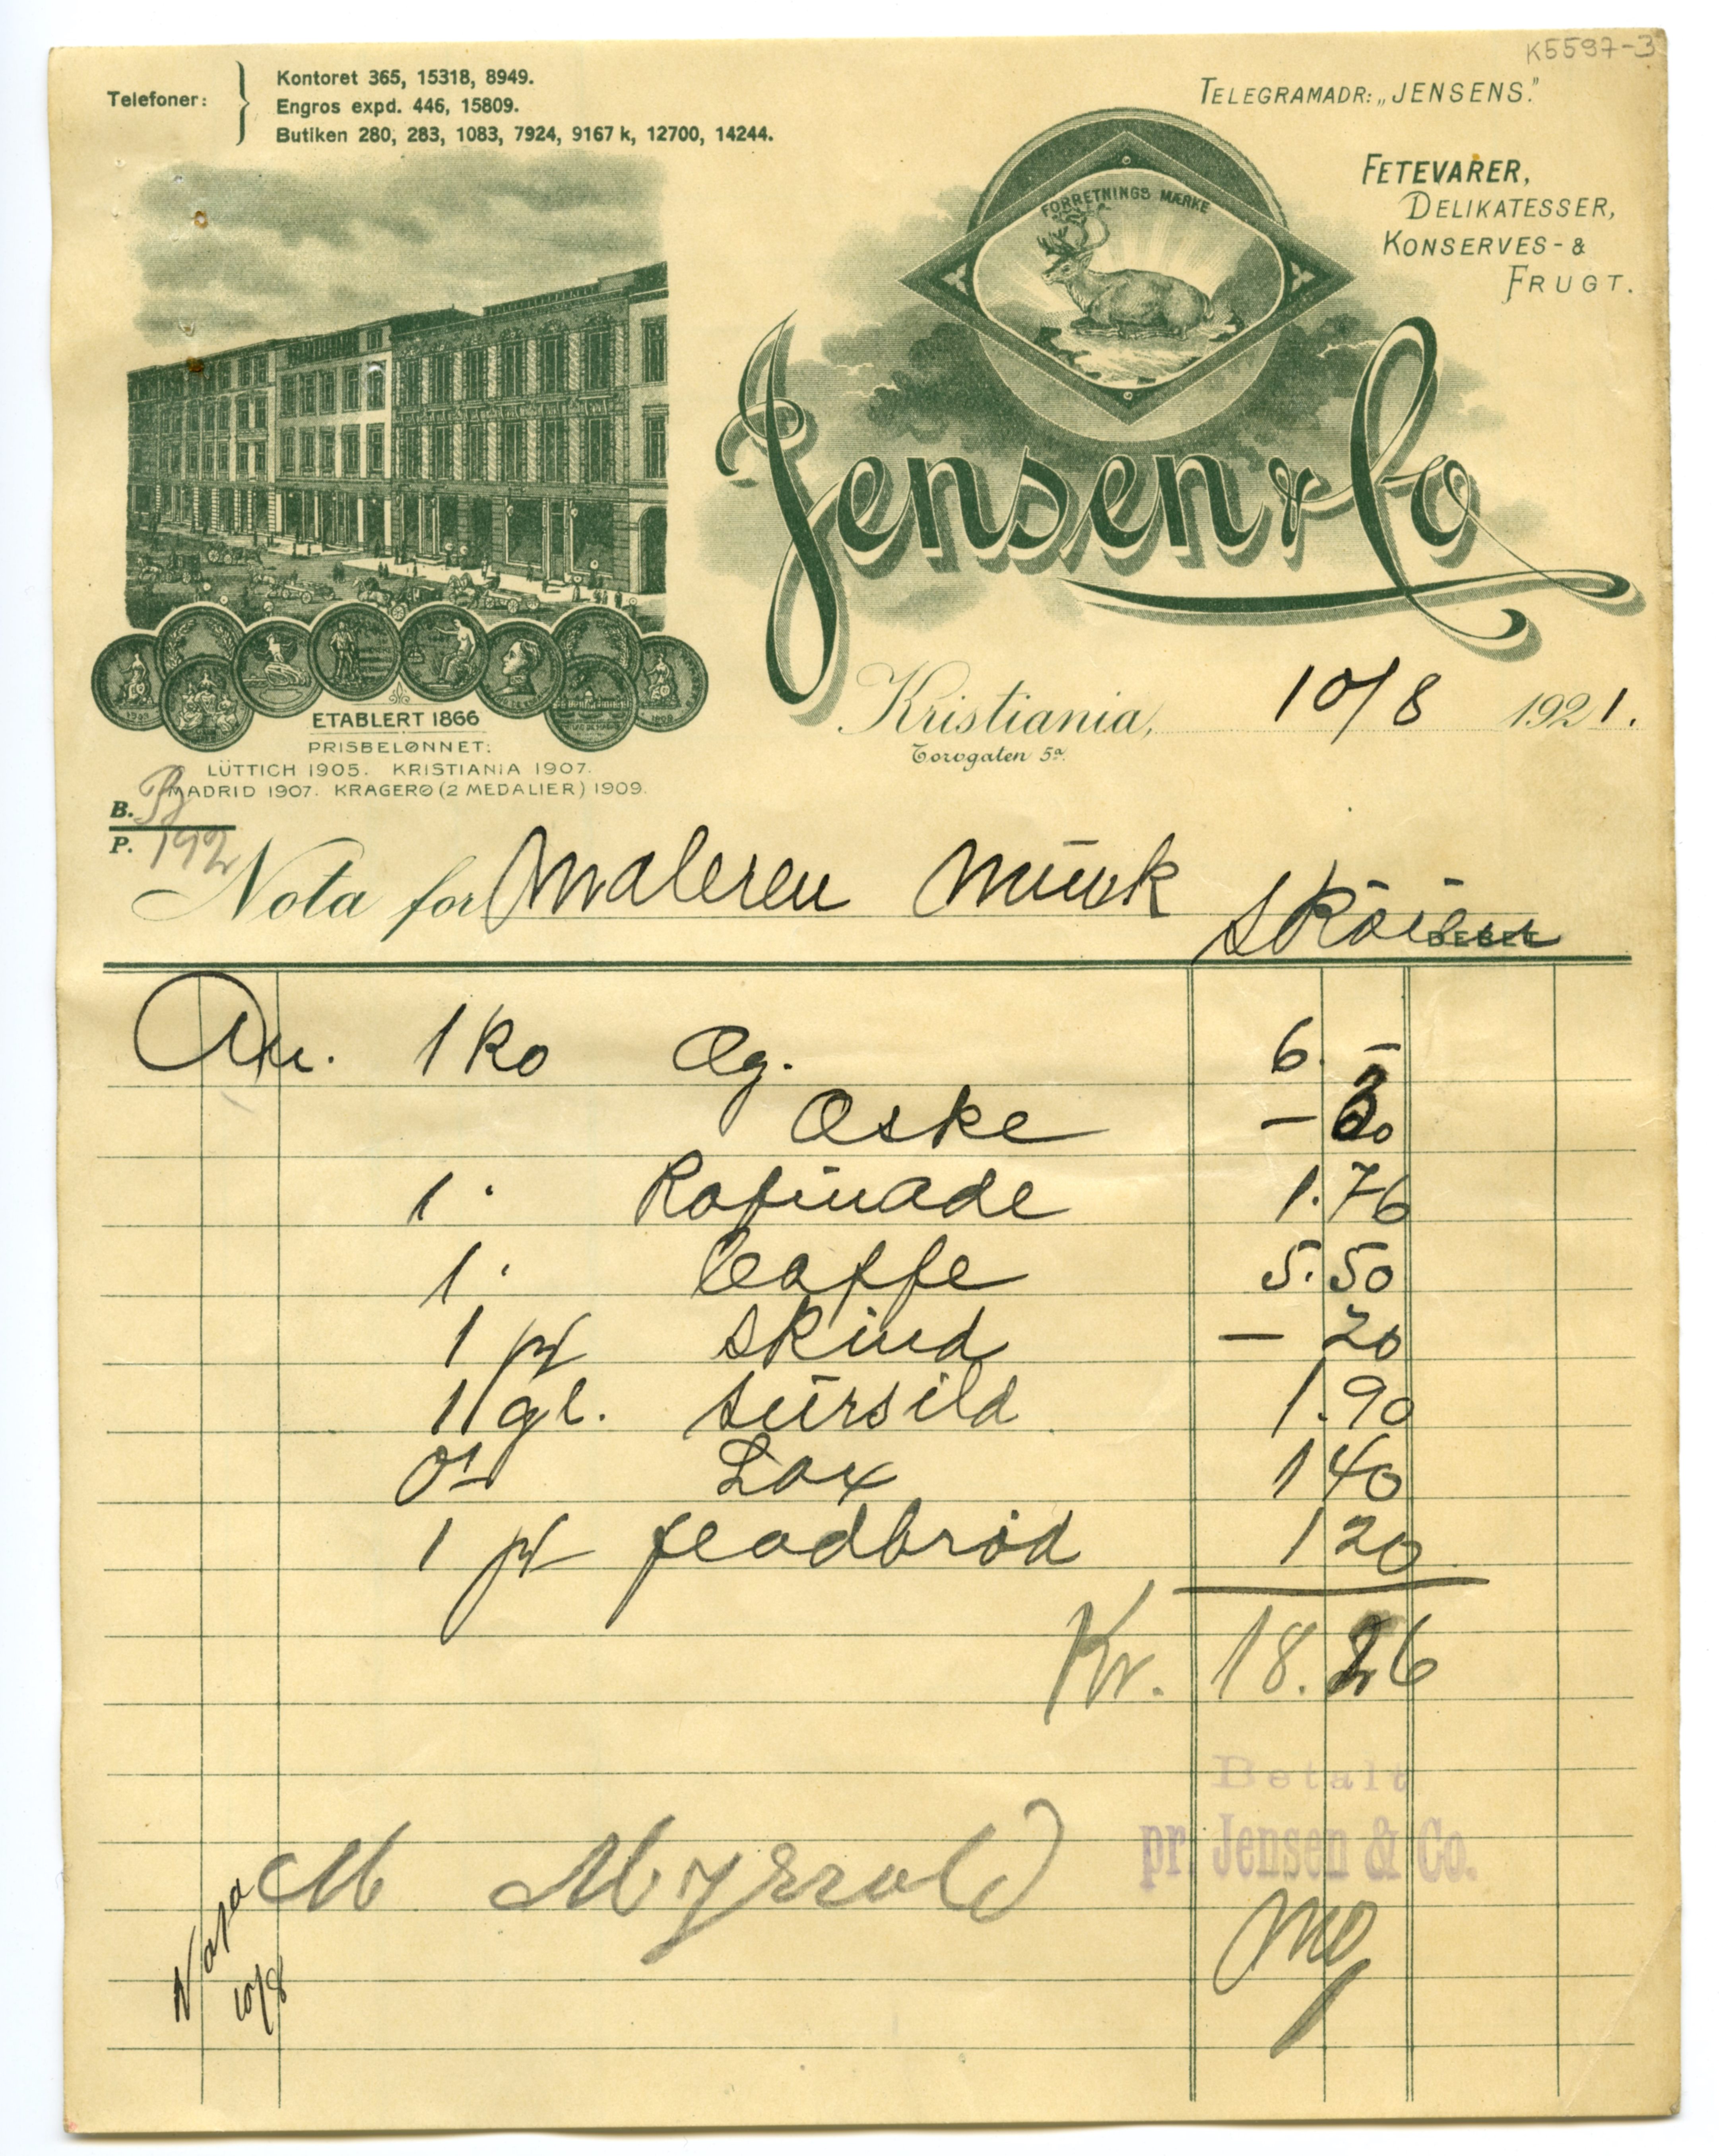 K5597-3
Telefoner:
Kontoret 365, 15318, 8949.
Engros expd. 446, 15809.
Butiken 280, 283, 1083, 7924, 9167 k, 12700, 14244.
TELEGRAMADR: „JENSENS."
FETEVARER,
DELIKATESSER,
KONSERVES- &
FRUGT.
FORRETNINGS MÆRKE
Jensen & Co
Kristiania, 10/8 1921.
Torvgaten 5a.
ETABLERT 1866
PRISBELØNNET:
LÜTTICH 1905. KRISTIANIA 1907.
MADRID 1907. KRAGERØ (2 MEDALIER) 1909.
B.
P. 192
Nota for Maleren Munk Sköien
DEBET
An. 1 ko Æg. 6. –
Æske –
1 " Rafinade 1.76
1 " Caffe 5.50
1 pk Skind – 20
1 gl. Sursild 1.90
Lax 1 40
1 pk fladbrød 1 20
Kr. 18.26
Betalt
pr. Jensen & Co.
M
Nota
10/8